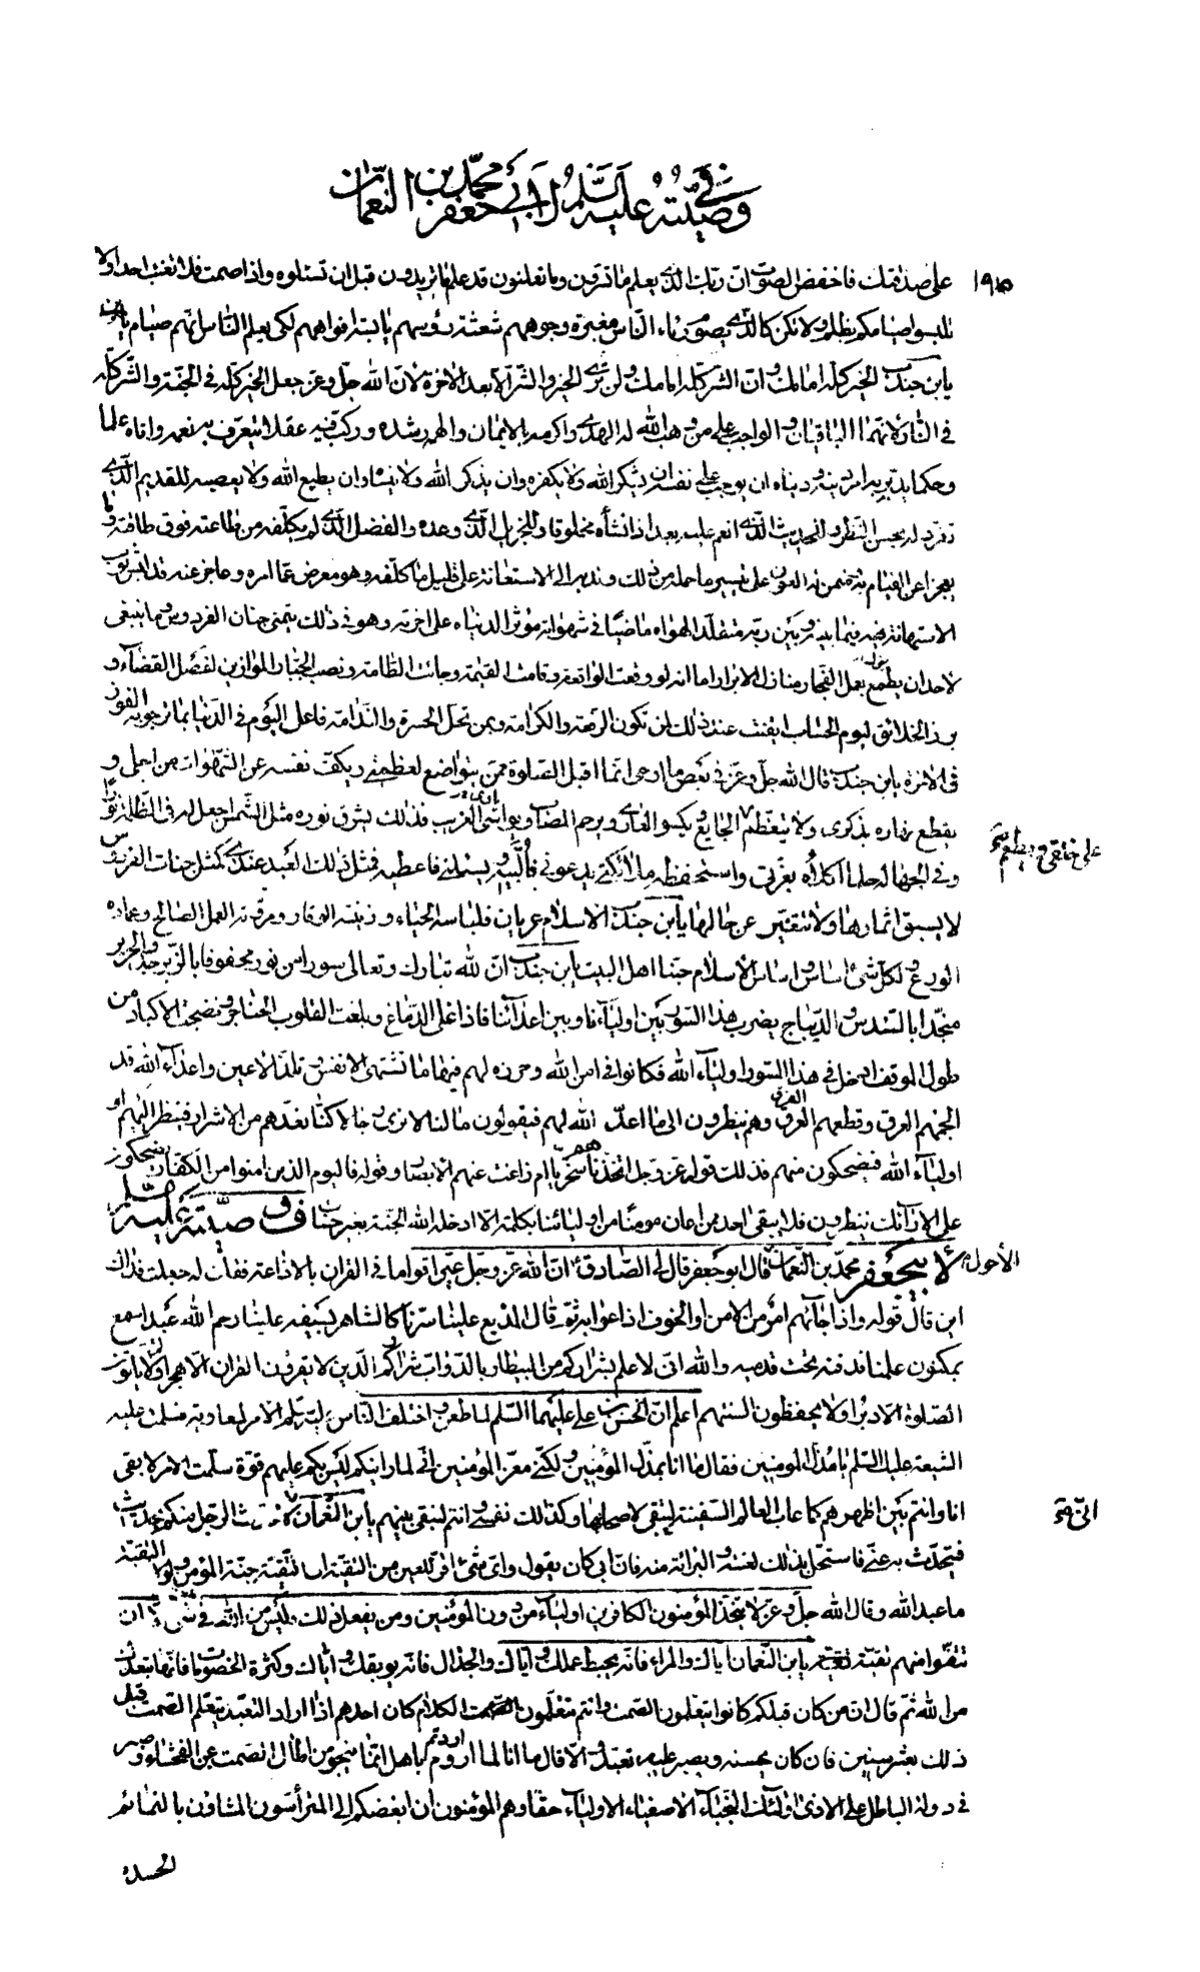 في وصيّته عليه السّلم لابي جعفر محمّد بن النعمان
١٩٥
على صدقتك فاخفض الصوت ان ربك الذى يعلم ما تسرون وما تعلنون قد علم ما تريدون قبل ان تسئلوه واذا صمت فلا تغتب احدا ولا
تلبسوا صيامكم بظلم ولا تكن كالذى يصوم رئاء الناس مغبرة وجوههم شعثة رؤسهم يابسة افواههم لكى يعلم الناس انهم صيام
يابن جندب الخير كله امامك وان الشر كله امامك ولن ترى الخير والشر الا بعد الاخرة لان الله جل وعز جعل الخير كله فى الجنة والشر كله
فى النار لانهما الباقيان والواجب على من وهب الله له الهدى واكرمه بالايمان والهمه رشده وركب فيه عقلا يتعرف به نعمه واتاه علما
وحكما يدبر به امر دينه ودنياه ان يوجب على نفسه ان يشكر الله ولا يكفره وان يذكر الله ولا ينساه وان يطيع الله ولا يعصيه للقديم الذى
تفرد له بحسن النظر وللحديث الذى انعم عليه بعد اذ انشأه مخلوقا وللجزيل الذى وعده والفضل الذى لم يكلفه من طاعته فوق طاقته وما
يعجز عن القيام به وضمن له العون على تيسير ما حمله من ذلك وندبه الى الاستعانة على قليل ما كلفه وهو معرض عما امره وعاجز عنه قد لبس ثوب
الاستهانة فيه فيما بينه وبين ربه متقلدا لهواه ماضيا فى شهواته مؤثرا لدنياه على اخرته وهو فى ذلك يتمنى جنان الفردوس وما ينبغى
لاحد ان يطمع ان ينزل بعمل الفجار منازل الابرار اما انه لو وقعت الواقعة وقامت القيمة وجائت الطامة ونصب الجبار الموازين لفصل القضآء و
برز الخلائق ليوم الحساب ايقنت عند ذلك لمن تكون الرفعة والكرامة وبمن تحل الحسرة والندامة فاعمل اليوم فى الدنيا بما ترجو به الفوز
فى الاخرة يابن جندب قال الله جل وعز فى بعض ما اوحى انما اقبل الصلوة ممن يتواضع لعظمتى ويكف نفسه عن الشهوات من اجلى و
يقطع نهاره بذكرى ولا يتعظم على خلقى ويطعم الجايع ويكسو العارى ويرحم المصاب ويؤاوى الغريب فذلك يشرق نوره مثل الشمس اجعل له فى الظلمة نورا
وفى الجهالة حلما اكلأه بعزتى واستحفظه ملائكتى يدعونى فالبيه ويسئلنى فاعطيه فمثل ذلك العبد عندى كمثل جنات الفردوس
لا يسبق اثمارها ولا تتغير عن حالها يابن جندب الاسلام عريان فلباسه الحياء وزينته الوقار ومروته العمل الصالح وعماده
الورع ولكل شىء اساس واساس الاسلام حبنا اهل البيت يابن جندب ان لله تبارك وتعالى سورا من نور محفوفا بالزبرجد والحرير
منجدا بالسندس والديباج يضرب هذا السور بين اوليآءنا وبين اعدآئنا فاذا غلى الدماغ وبلغت القلوب الحناجر ونضجت الاكباد من
طول الموقف ادخل فى هذا السور اوليآء الله فكانوا فى امن الله وحرزه لهم فيها ما تشتهى الانفس وتلذ الاعين واعدآء الله قد
الجمهم العرق وقطعهم الفرق وهم ينظرون الى ما اعد الله لهم فيقولون ما لنا لا نرى رجالا كنا نعدهم من الاشرار فينظر اليهم او
اوليآء الله فيضحكون منهم فذلك قوله عز وجل اتخذناهم سخريا ام زاغت عنهم الابصار وقوله فاليوم الذين امنوا من الكفار يضحكون
على الارائك ينظرون فلا يبقى احد ممن اعان مؤمنا من اوليائنا بكلمة الا ادخله الله الجنة بغير حساب فى وصيّته عليه السلم
لابيجعفر محمد بن النعمان الاحول قال ابو جعفر قال لى الصادق ع ان الله عز وجل عير اقواما فى القران بالاذاعة فقلت له جعلت فداك
اين قال قوله واذا جائهم امر من الامن او الخوف اذاعوا به ثم قال المذيع علينا سرنا كالشاهر بسيفه علينا رحم الله عبدا سمع
بمكنون علمنا فدفنه تحت قدميه والله انى لاعلم بشراركم من البيطار بالدواب شراركم الذين لا يقرؤن القران الا هجرا ولا ياتون
الصلوة الا دبرا ولا يحفظون السنتهم اعلم ان الحسن بن على عليهما السلم لما طعن واختلف الناس عليه سلم الامر لمعاوية فسلمت عليه
الشيعة عليك السلم يا مذل المومنين فقال ما انا بمذل المؤمنين ولكنى معز المؤمنين انى لما رايتكم ليس بكم عليهم قوة سلمت الامر لابقى
انا وانتم بين اظهرهم كما عاب العالم السفينة لتبقى لاصحابها وكذلك نفسى وانتم لنبقى بينهم يابن النعمان انى لاحدث الرجل منكم بحديث
فيتحدث به عنى فاستحل بذلك لعنته والبرائة منه فان ابى كان يقول واى شىء اقر للعين من التقية ان التقية جنة المؤمن ولولا التقية
ما عبد الله وقال الله جل وعز لا يتخذ المؤمنون الكافرين اوليآء من دون المؤمنين ومن يفعل ذلك فليس من الله فى شىء الا ان
تتقوا منهم تقية يابن النعمان اياك والمراء فانه يحبط عملك واياك والجدال فانه يوبقك واياك وكثرة الخصومات فانها تبعدك
من الله ثم قال ان من كان قبلكم كانوا يتعلمون الصمت وانتم تتعلمون الكلام كان احدهم اذا اراد التعبد يتعلم الصمت قبل
ذلك بعشر سنين فان كان يحسنه ويصبر عليه تعبد والا قال ما انا لما اروم باهل انما ينجو من اطال الصمت عن الفحشاء وصبر
فى دولة الباطل على الاذى اولئك النجبآء الاصفياء الاوليآء حقا وهم المؤمنون ان ابغضكم الى المتراسون المشاؤن بالنمائم
الحسدة